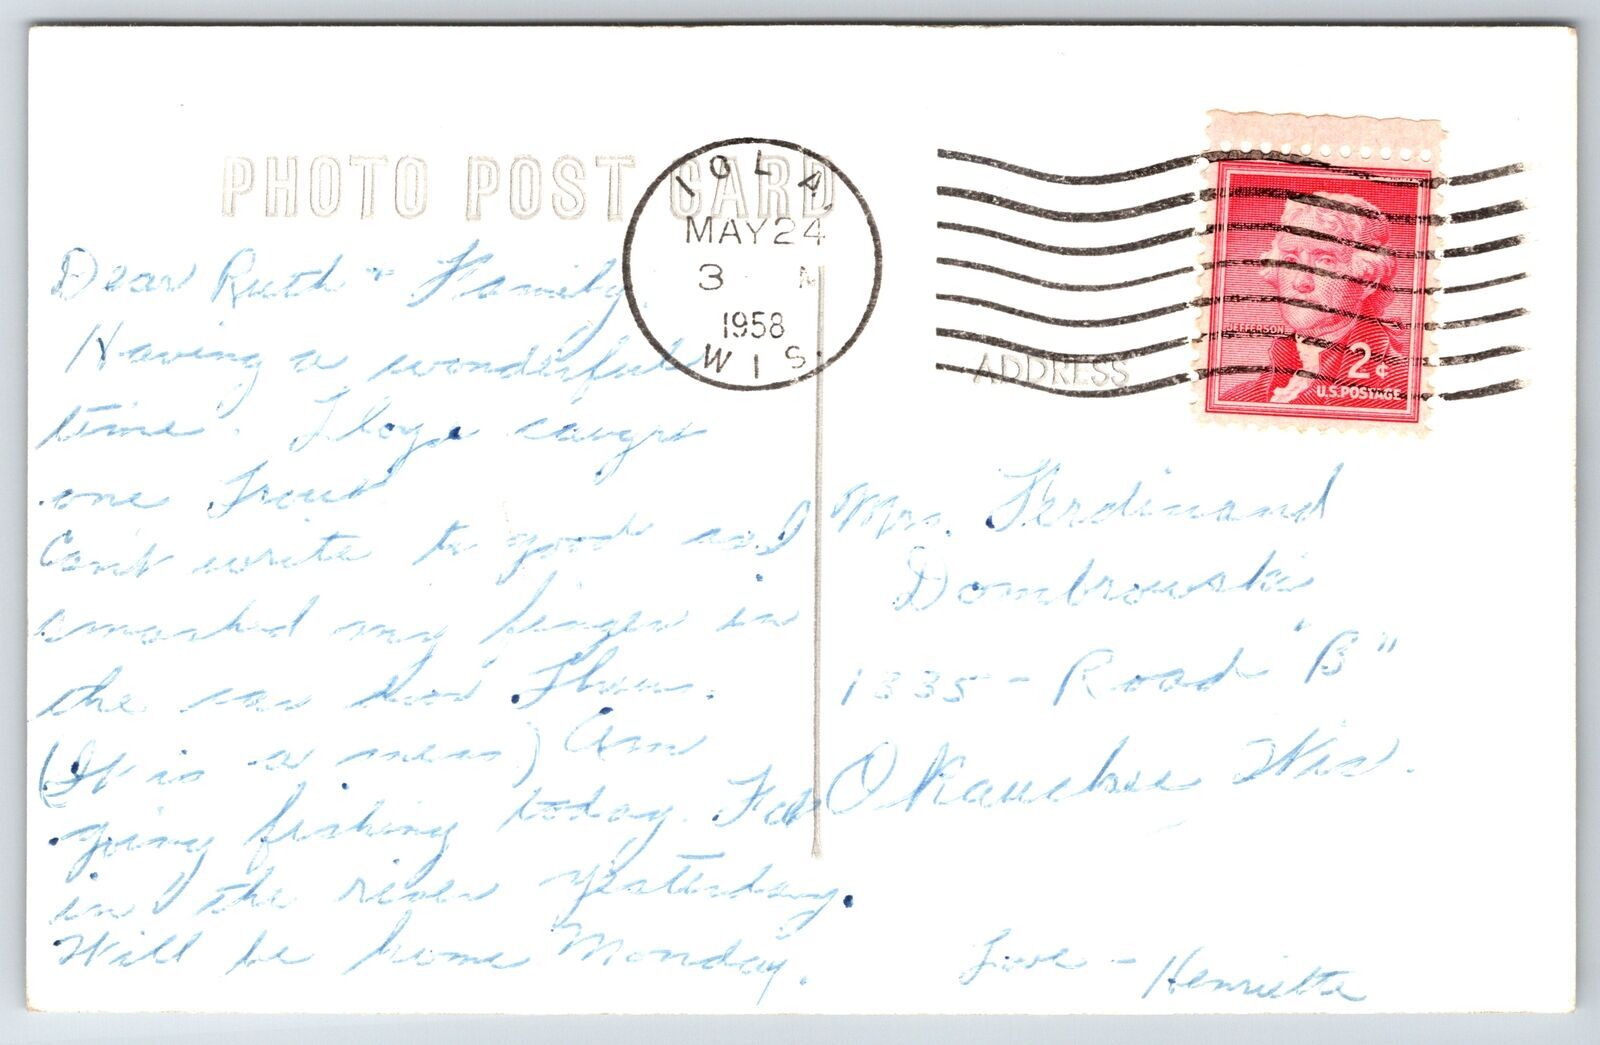 PHOTO POST CARD
IOLA
MAY 24
3 M
1958
WIS.
JEFFERSON
2¢
U.S. POSTAGE
ADDRESS
Dear Ruth + Family,
Having a wonderful
time. Lloyd caught
one Trout
Can't write to good as I
smashed my finger in
the car door Thurs.
(It is a mess) Am
going fishing today. Fell
in the river yesterday.
Will be home Monday.
Love - Henrietta
Mrs. Ferdinand
Dombrowski
1335 - Road "B"
Okauchee Wis.